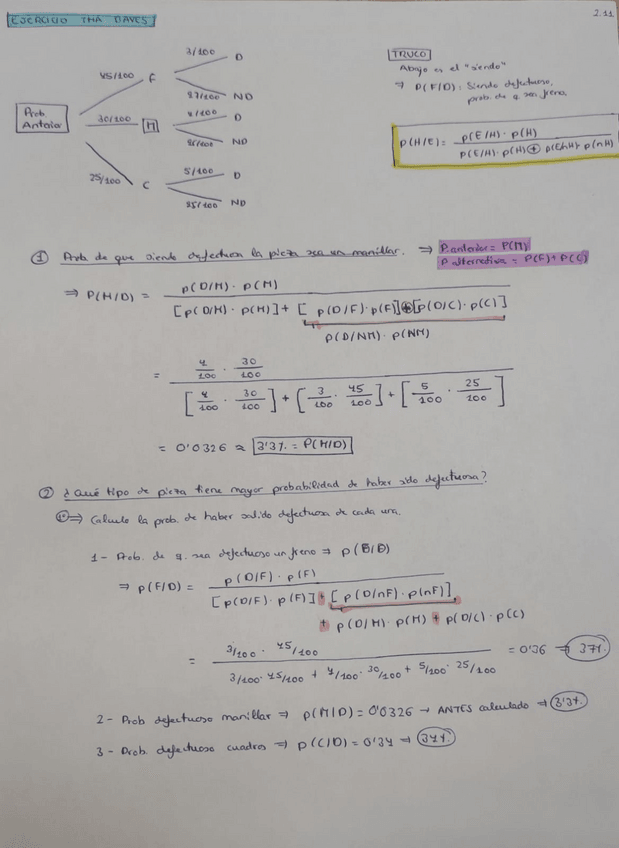 EJERCICIO THA DAVES
2.11
Prob
Anterior
45/100 F
3/100 D
97/100 ND
30/100 M
4/100 D
96/100 ND
25/100 C
5/100 D
95/100 ND
TRUCO
Abajo es el "siendo"
⇒ P(F/D): Siendo defectuoso,
prob. de q sea freno.
P(H/E) = p(E/H) · p(H) / p(E/H) · p(H) + p(E/nH) · p(nH)
① Prob de que siendo defectuosa la pieza sea un manillar. ⇒ P. anterior = P(M)
P alternativa = P(F) + P(C)
⇒ P(M/D) = p(D/M) · p(M) / [p(D/M) · p(M)] + [p(D/F) · p(F)] ⊕ [p(D/C) · p(C)]
p(D/NM) · p(NM)
= 4/100 · 30/100 / [4/100 · 30/100] + [3/100 · 45/100] + [5/100 · 25/100]
= 0'0326 ≈ 3'3%. = P(M/D)
② ¿Qué tipo de pieza tiene mayor probabilidad de haber sido defectuosa?
1º ⇒ Calculo la prob. de haber salido defectuosa de cada una.
1 - Prob. de q. sea defectuoso un freno ⇒ p(F/D)
⇒ p(F/D) = p(D/F) · p(F) / [p(D/F) · p(F)] + [p(D/nF) · p(nF)]
+ p(D/M) · p(M) + p(D/C) · p(C)
= 3/100 · 45/100 / 3/100 · 45/100 + 4/100 · 30/100 + 5/100 · 25/100 = 0'36 ⇒ 37%.
2 - Prob defectuoso manillar ⇒ p(M/D) = 0'0326 → ANTES calculado ⇒ 3'3%.
3 - Prob. defectuoso cuadros ⇒ p(C/D) = 0'34 ⇒ 34%.